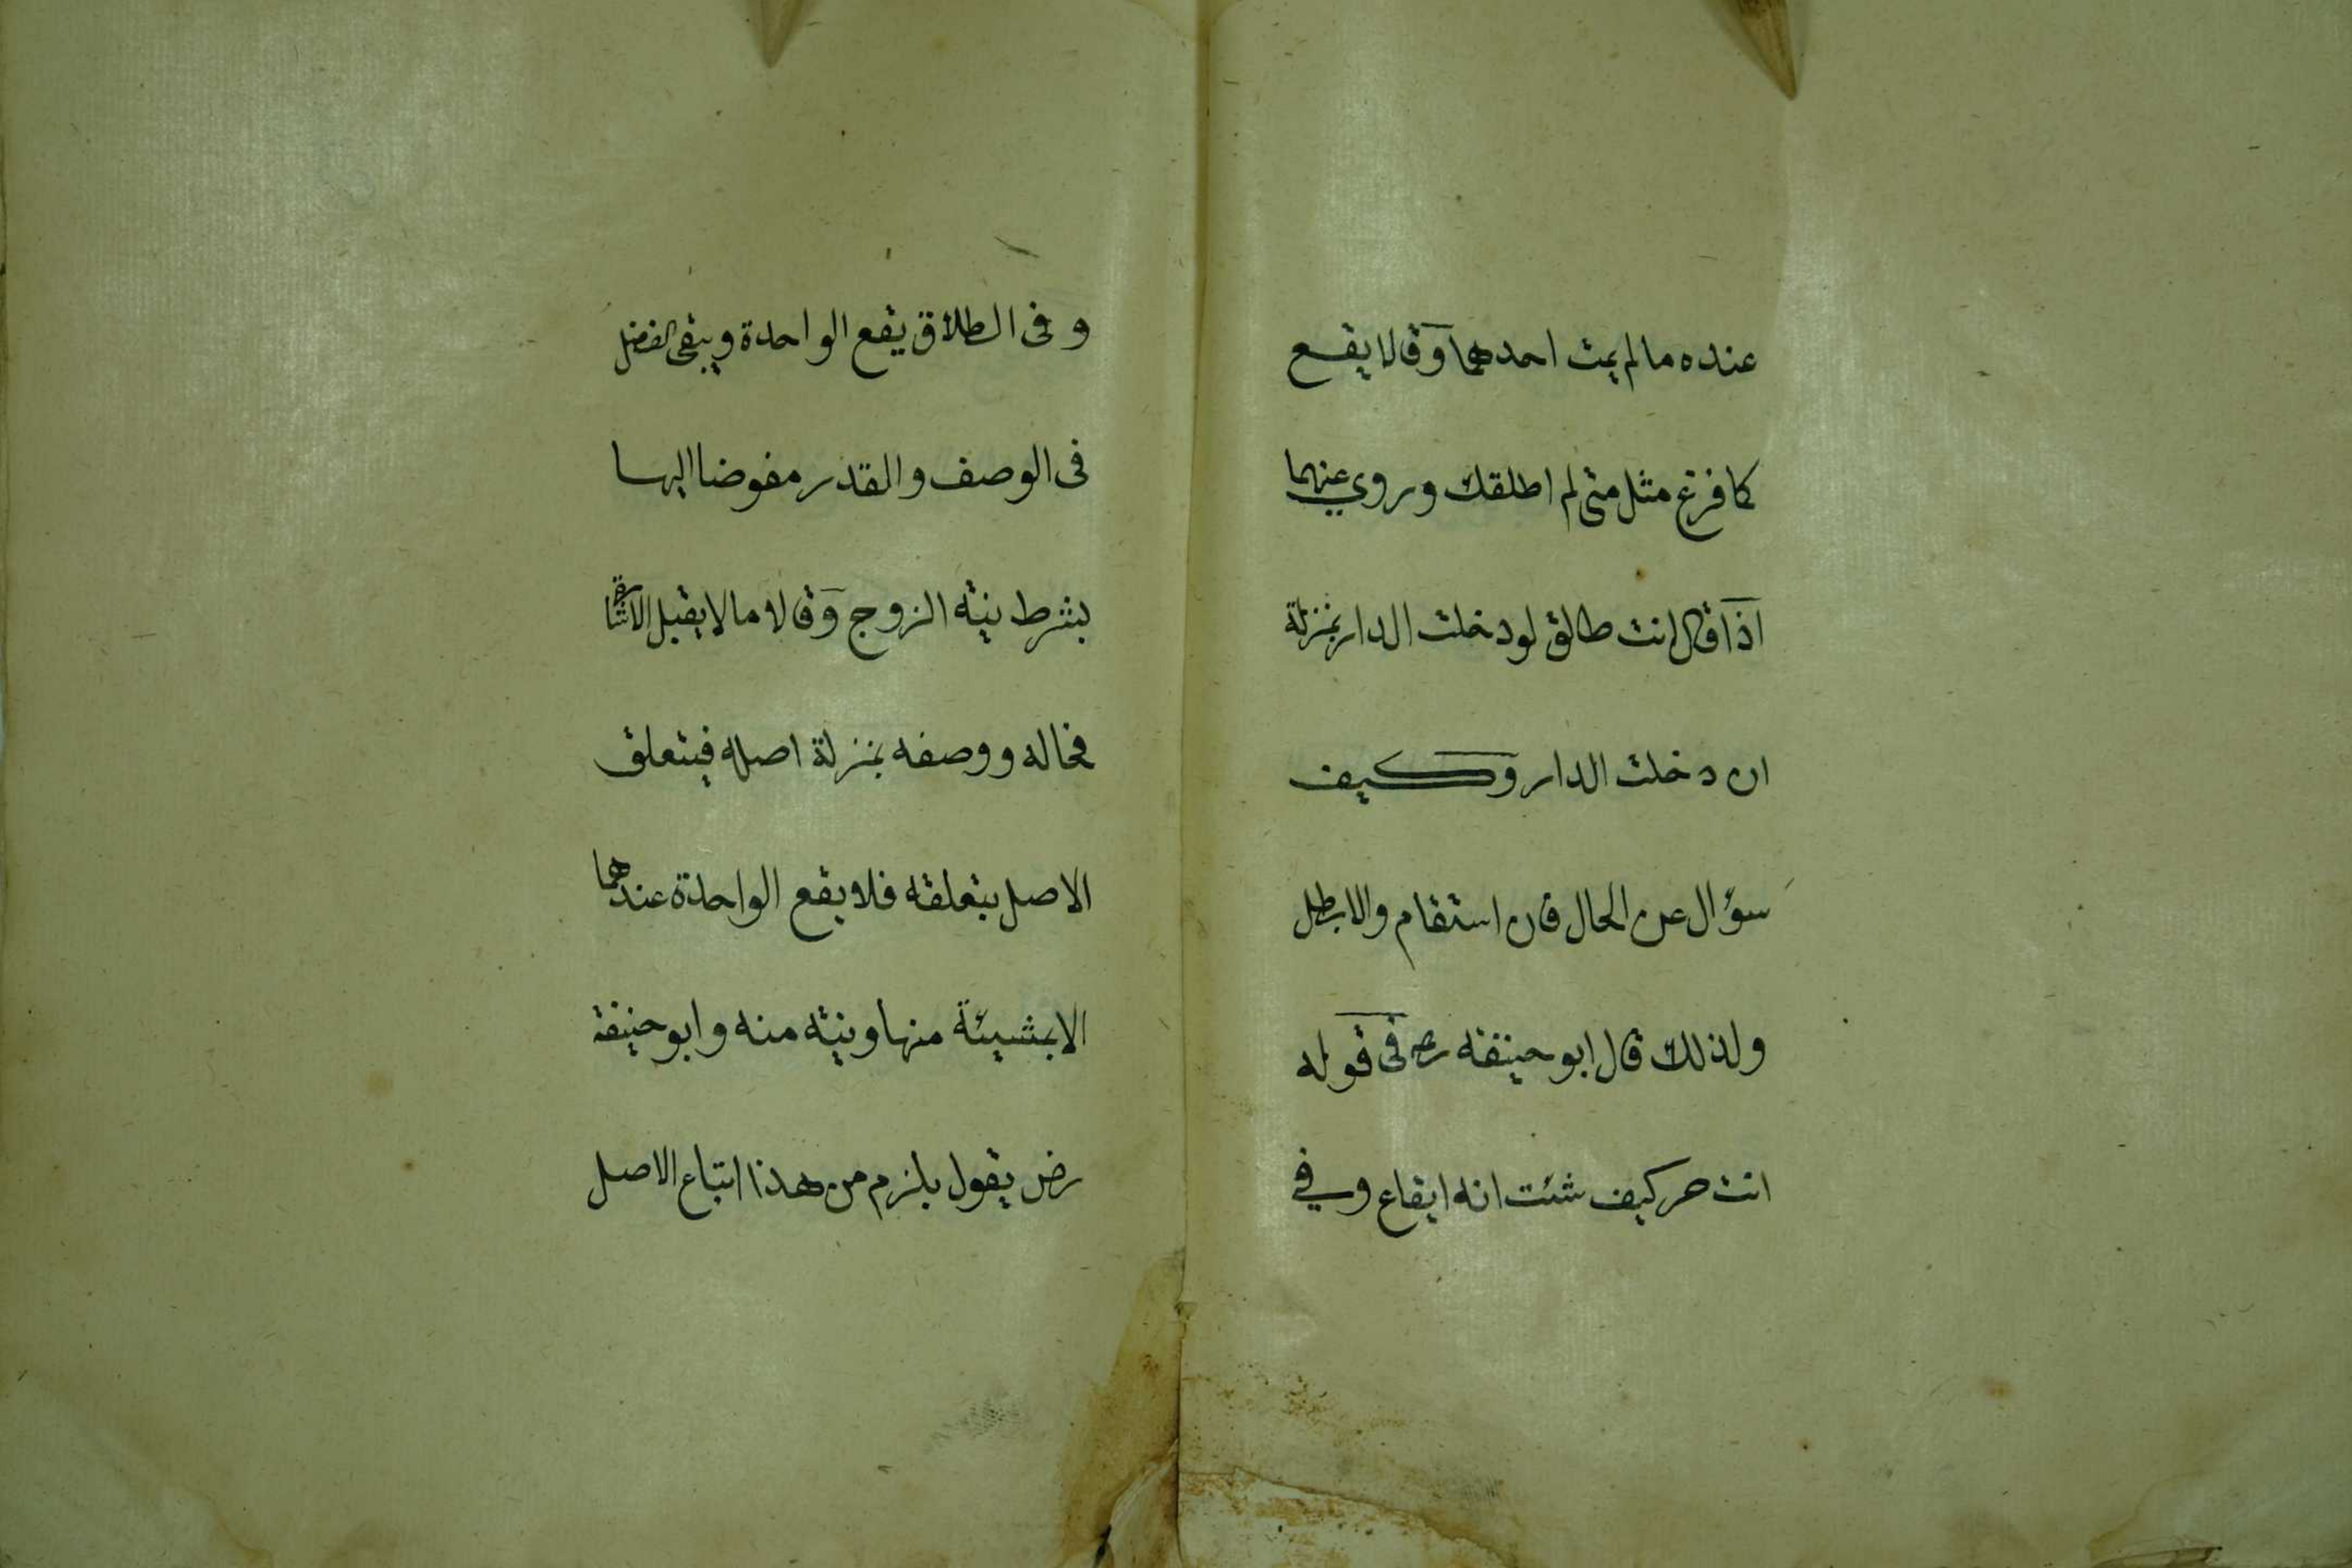 عنده ما لم يمت احدهما وقالا يقع
كما فرغ مثل متى لم اطلقك وروي عنهما
اذا قال انت طالق لو دخلت الدار بمنزلة
ان دخلت الدار وكيف
سؤال عن الحال فان استقام والا بطل
ولذلك قال ابو حنيفة رح فى قوله
انت حر كيف شئت انه ايقاع وفي
و فى الطلاق يقع الواحدة ويبقى الفضل
فى الوصف والقدر مفوضا اليها
بشرط نية الزوج وقالا ما لا يقبل الاشارة
فحاله ووصفه بمنزلة اصله فيتعلق
الاصل بتعلقه فلا يقع الواحدة عندهما
الا بمشيئة منها ونية منه وابو حنيفة
رض يقول يلزم من هذا اتباع الاصل